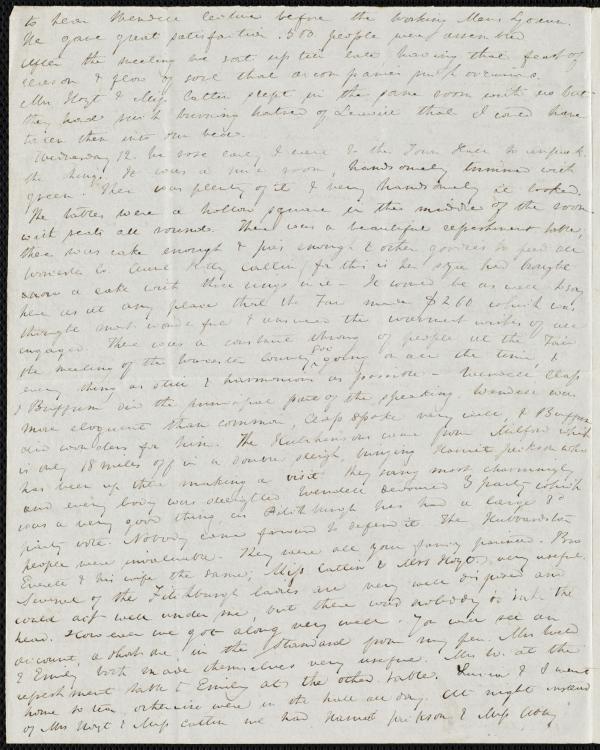 to hear Wendell lecture before the Working Mens Lyceum.
He gave great satisfaction. 500 people were assembled
After the meeting we sat up till late, having that feast of
reason & flow of soul that accompanies such evenings.
Mrs Hoyt & Miss Catlin slept in the same room with us but
they had such burning hatred of that I could have
taken them into our bed.
Wednesday 12. We rose early & went to the Town Hall to unpack
the things. It was a nice room, handsomely trimmed with
green. There was plenty of it & very handsomely it looked.
The tables were a hollow square in the middle of the room
with seats all round. There was a beautiful refreshment table,
there was cake enough & pies enough & other goodies to feed all
Worcester Co. Aunt Kitty Catlin, (for this is her style) had brought
a cake with three rings in it. It would be as well to say
here as at any place that the Fair made $260 which was
thought most wonderful & answered the warmest wishes of all
engaged. There was a constant throng of people at the Fair
the meeting of the Worcester County Soc going on all the time, &
every thing as still & harmonious as possible. Wendell Clap
& Buffum did the principal part of the speaking. Wendell was
more eloquent than common, Clap spoke very well, & Buffum
did wonders for him. The Hutchinsons came from Milford which
is only 18 miles off in a double sleigh, bringing Harriet Jackson who
has been up there making a visit. They sang most charmingly
and every body was delighted. Wendell 3d party which
was a very good thing, as Fitchburgh has had a large 3d
party vote. Nobody came forward to defend it. The Hubbardston
people were invaluable. They were all your fancy painted. Bro
Everett & his wife the same; Miss Catlin & Mrs Hoyt very useful.
Several of the Fitchburgh ladies are very well disposed and
could act well under me, but there was nobody to take the
head. However we got along very well. You will see an
account, a short one, in the Standard from my pen. Mrs
& Emily both made themselves very useful. Mrs W. at the
refreshment table & Emily at the other table. & I went
home to tea, otherwise were in the hall all day. At night instead
of Mrs Hoyt & Miss Catlin we had Harriet Jackson & Miss Abby